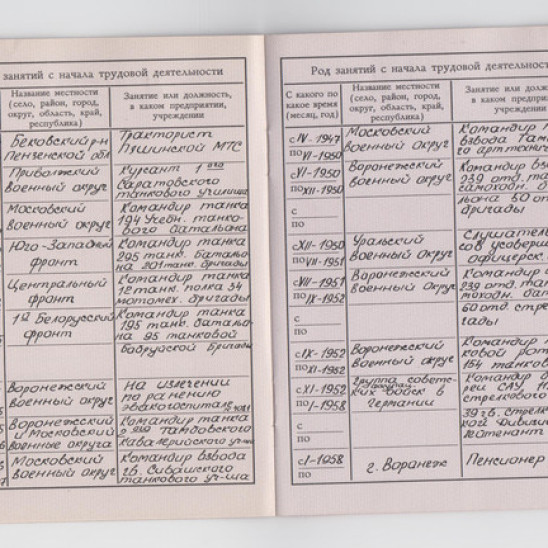 занятий с начала трудовой деятельности
Название местности
(село, район, город,
округ, область, край,
республика)
Занятие или должность,
в каком предприятии,
учреждении
Бековский р-н
Пензенской обл
Тракторист
Пяшинской МТС
Приволжский
военный округ
Курсант 1 ого
Саратовского
танкового училища
Московский
военный округ
Командир танка
194 учебн. танко-
вого батальона
Юго-Западный
фронт
Командир танка
295 танк. батальо-
на 201 танк. бригады
Центральный
фронт
Командир танка
12 танк. полка 34
мотомех. бригады
1й Белорусский
фронт
Командир танка
195 танк. батальо-
на 95 танковой
Бобруйской бригады
Воронежский
военный округ
На излечении
по ранению
эвакогоспиталь
Воронежский
и Московский
военные округа
Командир танка
2 Тамбовского
Кавалерийского уч-ща
Московский
военный округ
Командир взвода
гв. Сивашского
танкового уч-ща
Род занятий с начала трудовой деятельности
С какого по
какое время
(месяц, год)
Название местности
(село, район, город,
округ, область, край,
республика)
Занятие или должность,
в каком предприятии,
учреждении
с IV-1947
по VI-1950
Московский
военный округ
Командир
взвода Там
го арттехнич
с VI-1950
по XII-1950
Воронежский
военный округ
Командир вз
239 отд. та
самоходн. ба
льона 60 от
бригады
с
по
с XII-1950
по VII-1951
Уральский
военный округ
Слушатель
сов усоверш
офицерск.
с VII-1951
по IX-1952
Воронежский
военный округ
Командир
239 отд. тан
моходн. бат
60 отд. стре
гады
с
по
с IX-1952
по XI-1952
Воронежский
военный округ
Командир
ковой рот
154 танков
с XI-1952
по I-1958
Группа советс-
ких войск в
Германии
Командир
реи САУ
стрелкового
39 гв. стрелк
кой дивизи
с
по
с I-1958
по
г. Воронеж
Пенсионер